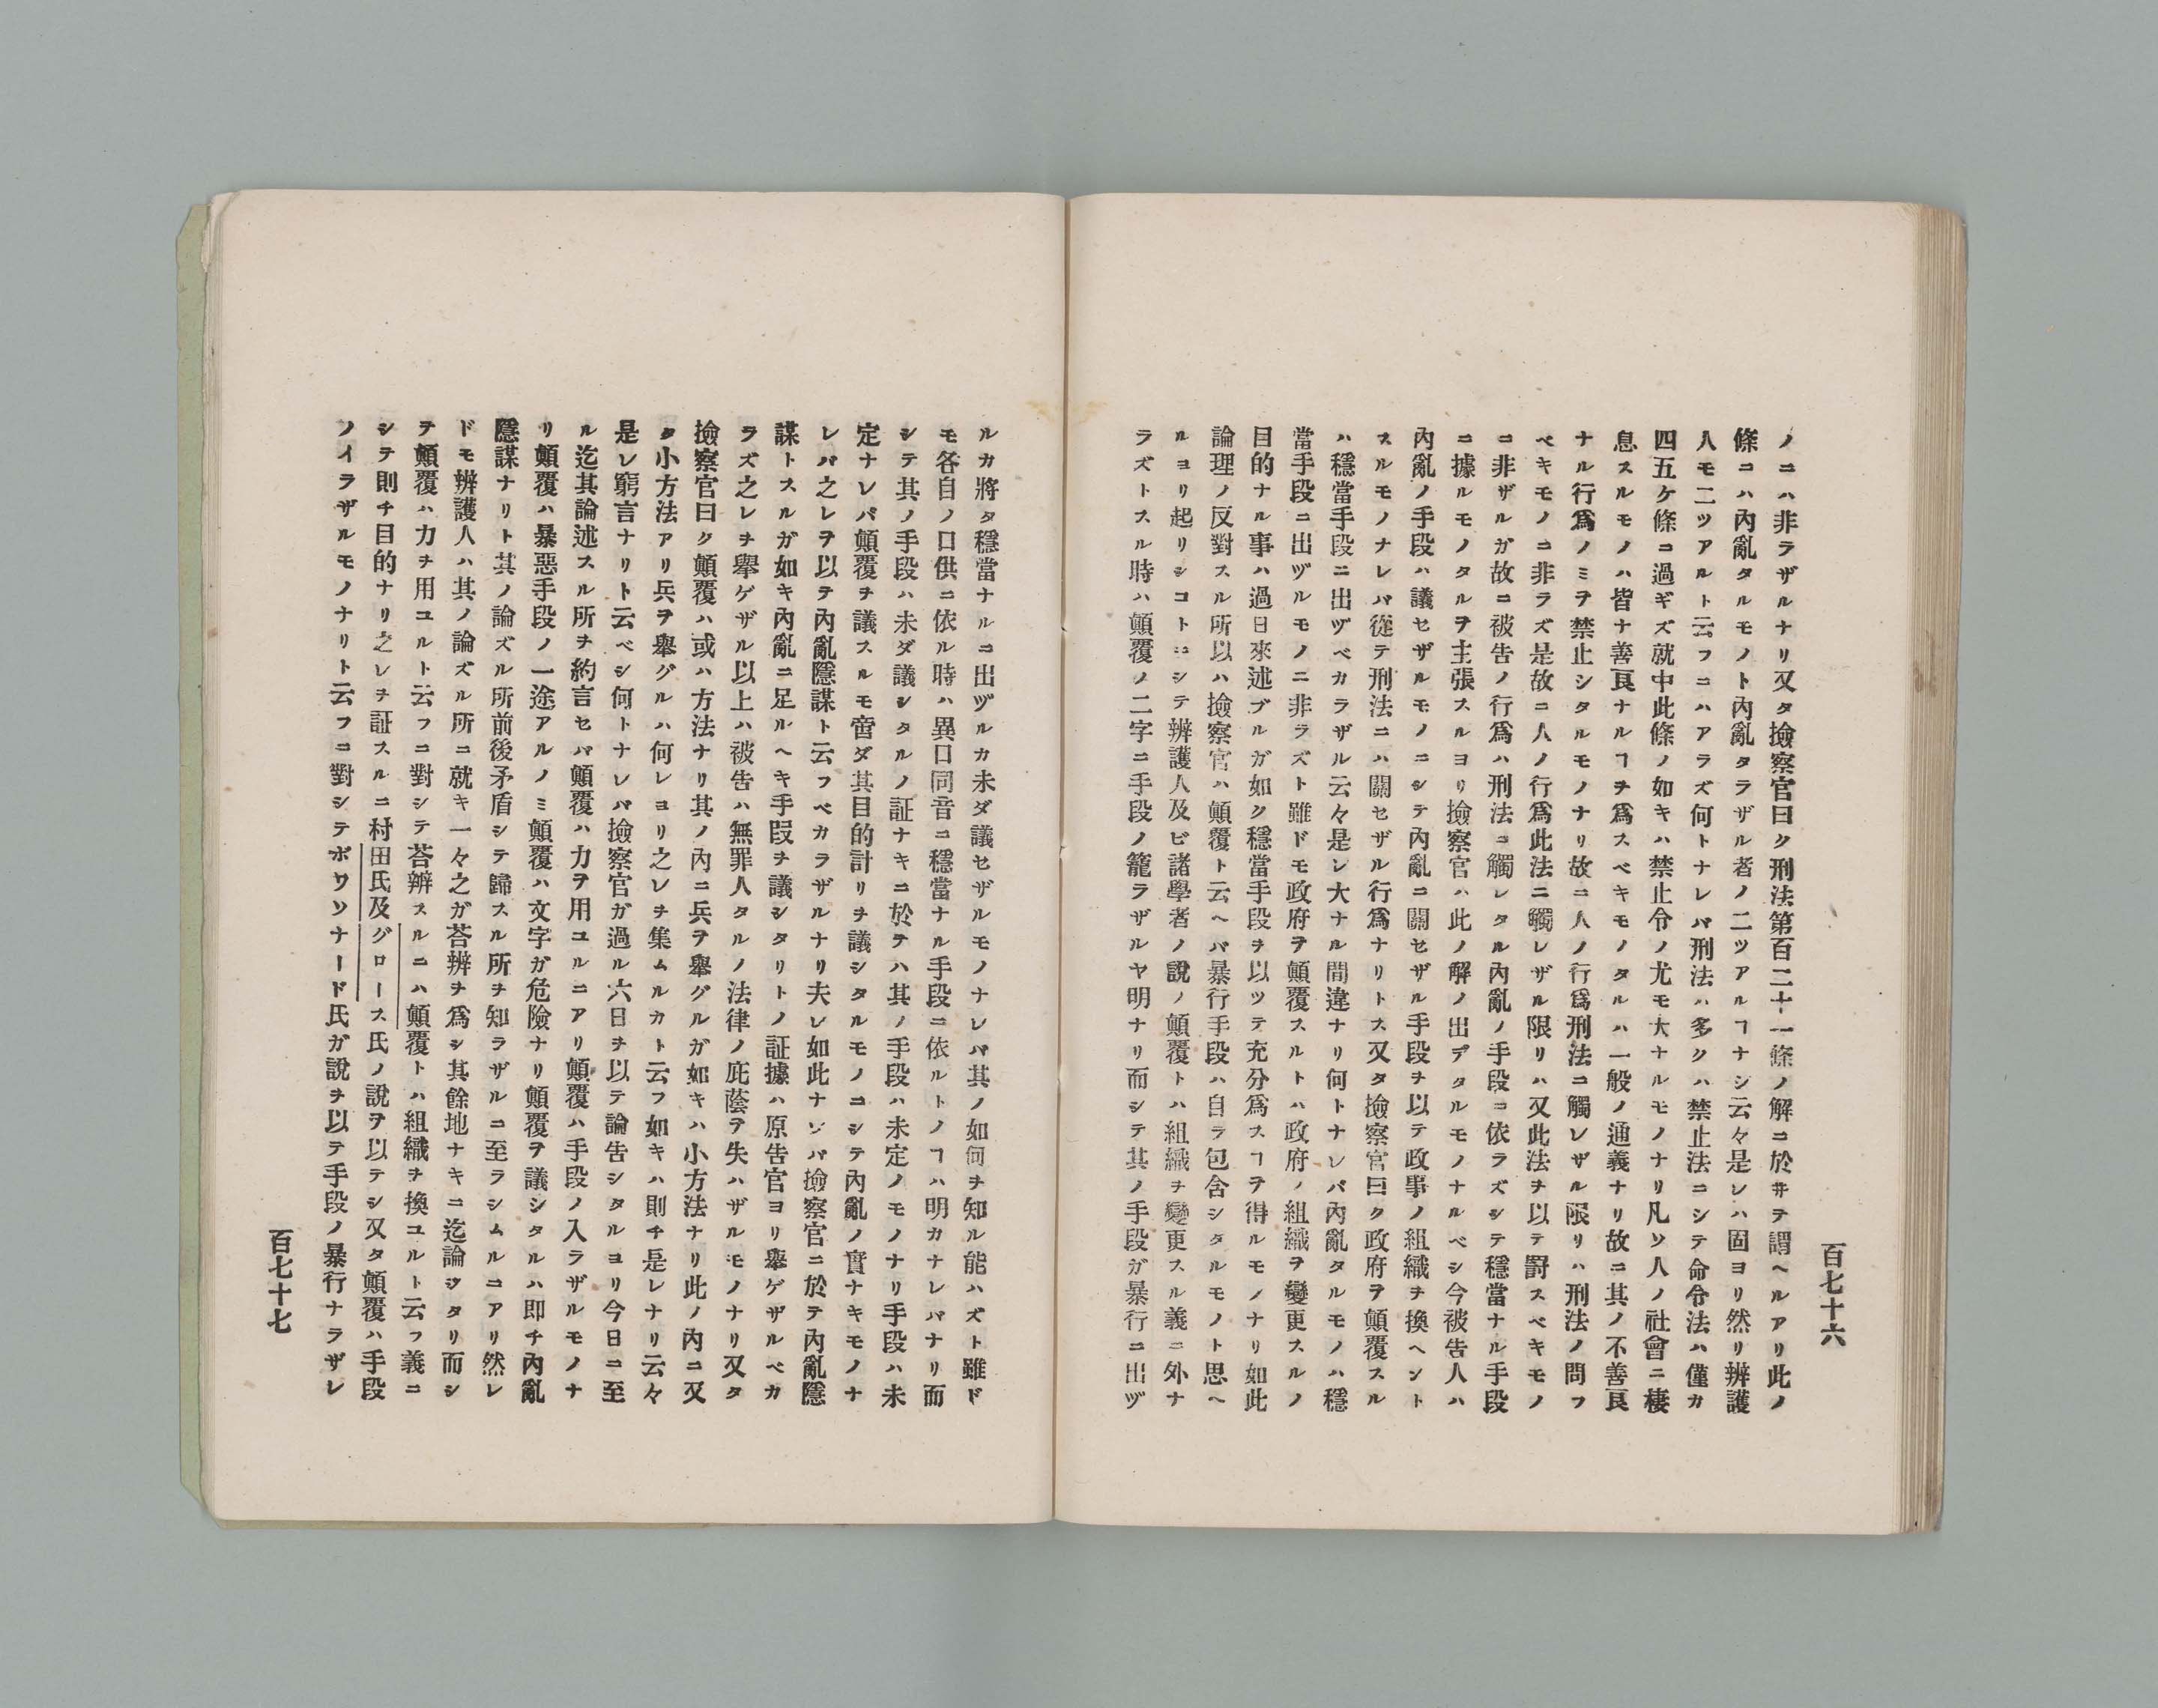 百七十六
ノニハ非ラザルナリ又タ撿察官曰ク刑法第百二十一條ノ解ニ於ヰテ謂ヘルアリ此ノ
條ニハ內亂タルモノト內亂タラザル者ノ二ツアルヿナシ云々是レハ固ヨリ然リ辨護
人モ二ツアルト云フニハアラズ何トナレバ刑法ハ多クハ禁止法ニシテ命令法ハ僅カ
四五ケ條ニ過ギズ就中此條ノ如キハ禁止令ノ尤モ大ナルモノナリ凡ソ人ノ社會ニ棲
息スルモノハ皆ナ善良ナルヿヲ爲スベキモノタルハ一般ノ通義ナリ故ニ其ノ不善良
ナル行爲ノミヲ禁止シタルモノナリ故ニ人ノ行爲刑法ニ觸レザル限リハ刑法ノ問フ
ベキモノニ非ラズ是故ニ人ノ行爲此法ニ觸レザル限リハ又此法ヲ以テ罸スベキモノ
ニ非ザルガ故ニ被告ノ行爲ハ刑法ニ觸レタル內亂ノ手段ニ依ラズシテ穩當ナル手段
ニ據ルモノタルヲ主張スルヨリ撿察官ハ此ノ解ノ出デタルモノナルベシ今被告人ハ
內亂ノ手段ハ議セザルモノニシテ內亂ニ關セザル手段ヲ以テ政事ノ組織ヲ換ヘント
スルモノナレバ從テ刑法ニハ關セザル行爲ナリトス又タ撿察官曰ク政府ヲ顚覆スル
ハ穩當手段ニ出ヅベカラザル云々是レ大ナル間違ナリ何トナレバ內亂タルモノハ穩
當手段ニ出ヅルモノニ非ラズト雖ドモ政府ヲ顚覆スルトハ政府ノ組織ヲ變更スルノ
目的ナル事ハ過日來述ブルガ如ク穩當手段ヲ以ツテ充分爲スヿヲ得ルモノナリ如此
論理ノ反對スル所以ハ撿察官ハ顚覆ト云ヘバ暴行手段ハ自ラ包含シタルモノト思ヘ
ルヨリ起リシコトニシテ辨護人及ビ諸學者ノ說ノ顚覆トハ組織ヲ變更スル義ニ外ナ
ラズトスル時ハ顚覆ノ二字ニ手段ノ籠ラザルヤ明ナリ而シテ其ノ手段ガ暴行ニ出ヅ
ルカ將タ穩當ナルニ出ヅルカ未ダ議セザルモノナレバ其ノ如何ヲ知ル能ハズト雖ド
モ各自ノ口供ニ依ル時ハ異口同音ニ穩當ナル手段ニ依ルトノヿハ明カナレバナリ而
シテ其ノ手段ハ未ダ議シタルノ証ナキニ於テハ其ノ手段ハ未定ノモノナリ手段ハ未
定ナレバ顚覆ヲ議スルモ啻ダ其目的計リヲ議シタルモノニシテ內亂ノ實ナキモノナ
レバ之レヲ以テ內亂隱謀ト云フベカラザルナリ夫レ如此ナレバ撿察官ニ於テ內亂隱
謀トスルガ如キ內亂ニ足ルヘキ手段ヲ議シタリトノ証據ハ原告官ヨリ舉ゲザルベカ
ラズ之レヲ舉ゲザル以上ハ被告ハ無罪人タルノ法律ノ庇蔭ヲ失ハザルモノナリ又タ
撿察官曰ク顚覆ハ或ハ方法ナリ其ノ內ニ兵ヲ舉グルガ如キハ小方法ナリ此ノ內ニ又
タ小方法アリ兵ヲ舉グルハ何レヨリ之レヲ集ムルカト云フ如キハ則チ是レナリ云々
是レ窮言ナリト云ベシ何トナレバ撿察官ガ過ル六日ヲ以テ論告シタルヨリ今日ニ至
ル迄其論述スル所ヲ約言セバ顚覆ハ力ヲ用ユルニアリ顚覆ハ手段ノ入ラザルモノナ
リ顚覆ハ暴惡手段ノ一途アルノミ顚覆ハ文字ガ危險ナリ顚覆ヲ議シタルハ即チ內亂
隱謀ナリト其ノ論ズル所前後矛盾シテ歸スル所ヲ知ラザルニ至ラシムルニアリ然レ
ドモ辨護人ハ其ノ論ズル所ニ就キ一々之ガ荅辨ヲ爲シ其餘地ナキニ迄論シタリ而シ
テ顚覆ハ力ヲ用ユルト云フニ對シテ荅辨スルニハ顚覆トハ組織ヲ換ユルト云フ義ニ
シテ則チ目的ナリ之レヲ証スルニ村田氏及グロース氏ノ說ヲ以テシ又タ顚覆ハ手段
ノイラザルモノナリト云フニ對シテボワソナード氏ガ說ヲ以テ手段ノ暴行ナラザレ
百七十七